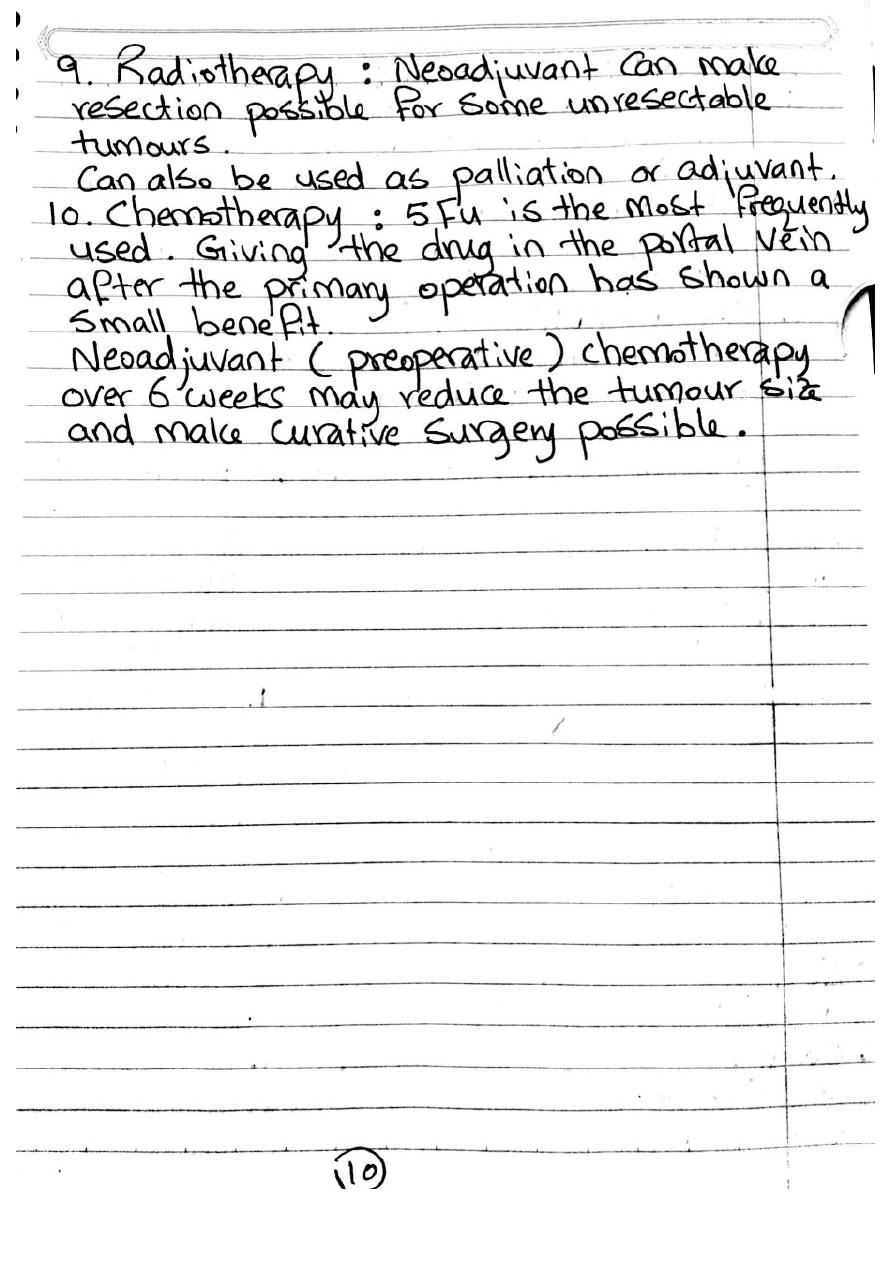 9. Radiotherapy : Neoadjuvant Can make
resection possible for Some unresectable
tumours.
Can also be used as palliation or adjuvant.
10. Chemotherapy : 5 Fu is the Most frequently
used. Giving the drug in the portal vein
after the primary operation has Shown a
Small benefit.
Neoadjuvant ( preoperative ) chemotherapy
over 6 weeks may reduce the tumour size
and make Curative Surgery possible.
110